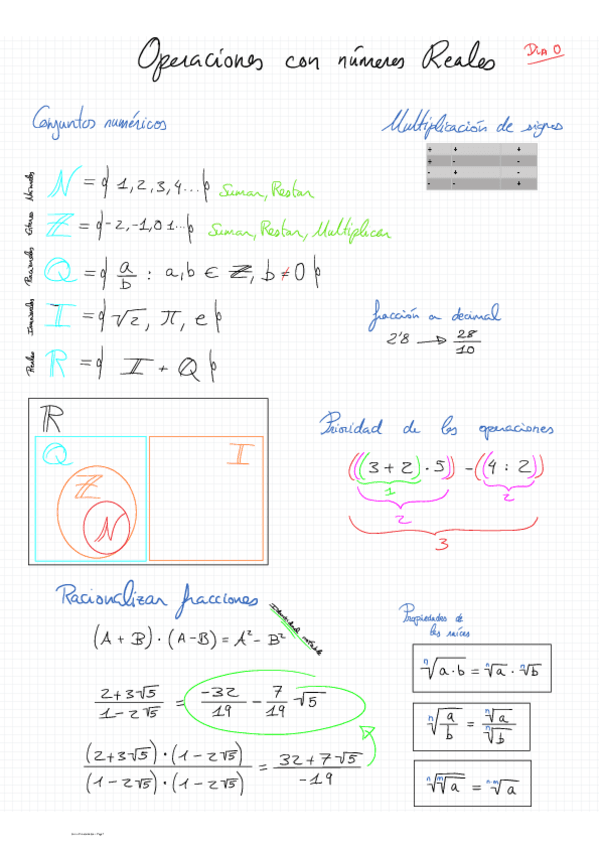 Operaciones con números Reales
Día 0
Conjuntos numéricos
Naturales N = { 1, 2, 3, 4... } Sumar, Restar
Z = { -2, -1, 0 1... } Sumar, Restar, Multiplicar
Racionales Q = { a/b : a, b ∈ Z, b ≠ 0 }
Irracionales I = { √2, π, e }
Reales R = { I + Q }
Multiplicación de signos
+ + +
+ - -
- + -
- - +
fracción a decimal
2'8 → 28/10
R
Q I
Z
N
Prioridad de las operaciones
(((3 + 2) · 5)) - ((4 : 2))
1
2 2
3
Racionalizar fracciones
(A + B) · (A - B) = A² - B²
Identidad notable
(2+3√5)/(1-2√5) = -32/19 - 7/19 √5
((2+3√5) · (1-2√5))/((1-2√5) · (1-2√5)) = (32+7√5)/-19
Propiedades de
las raíces
ⁿ√(a·b) = ⁿ√a · ⁿ√b
ⁿ√(a/b) = ⁿ√a / ⁿ√b
ⁿ√(ᵐ√a) = ⁿ·ᵐ√a